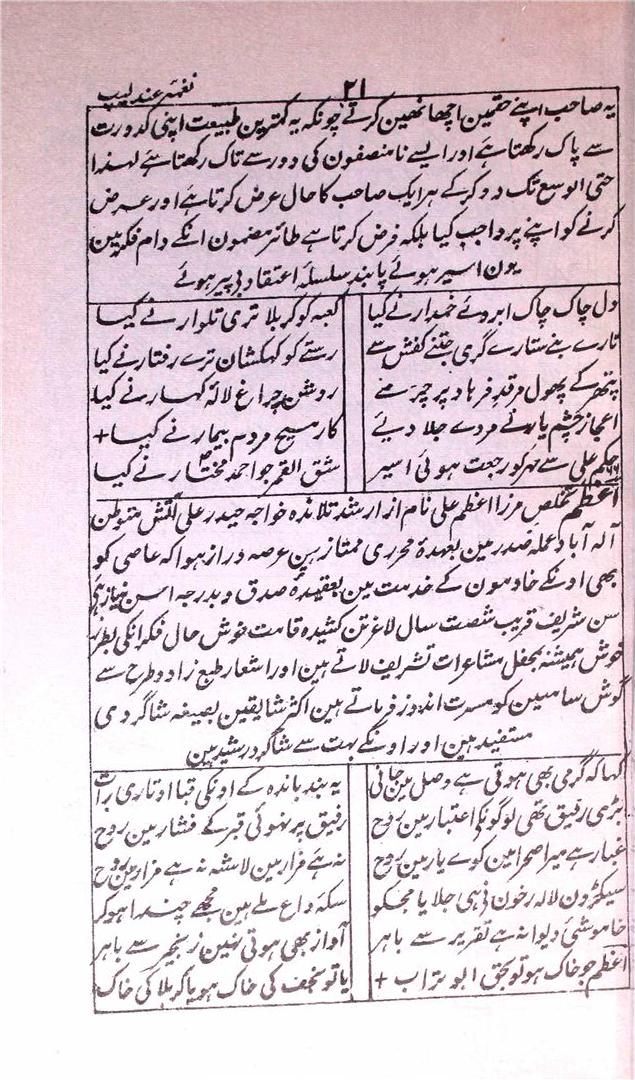 ۲۱
نغمۂ عندلیب
یہ صاحب اپنے حقمین اچھا نھین کرتے چونکہ یہ کمترین طبیعت اپنی کدورت
سے پاک رکھتا ہے اور ایسے نا منصفون کی دور سے تاک رکھتا ہے لہذا
حتی الوسع تگ و دو کرکے ہر ایک صاحب کا حال عرض کرتا ہے اور عرض
کرنے کو اپنے پر واجب کیا بلکہ فرض کرتا ہے طائر مضمون انکے دام فکر مین
یون اسیر ہوئے پابند سلسلۂ اعتقاد پیر ہوئے
دل چاک چاک ابروے خمدار نے کیا
کعبہ کو کربلا تری تلوار نے کیا
تارے بنے ستارے گری جتنے کفش سے
رستے کو کہکشان ترے رفتار نے کیا
پتھر کے پھول مرقد فرہاد پر چڑھے
روشن چراغ لالۂ کہسار نے کیا
اعجاز چشم یار نے مردے جلا دیے
کار مسیح مردم بیمار نے کیا +
حکم علی سے مہر کو رجعت ہوئی اسیر
شق القمر جو احمد مختار نے کیا
اعظم تخلص مرزا اعظم علی نام از ارشد تلامذہ خواجہ حیدر علی آتش متوطن
الہ آباد عملہ صدر مین بعہدۂ محرری ممتاز ہین عرصہ دراز ہوا کہ عاصی کو
بھی اونکے خادمون کے خدمت مین بعقیدۂ صدق و بدرجہ احسن نیاز ہے
سن شریف قریب شصت سال لاغر تن کشیدہ قامت خوش حال فکر انکی بطرز
خوش ہمیشہ بمحفل مشاعرات تشریف لاتے ہین اور اشعار طبع زاد و طرح سے
گوش سامعین کو مسرت اندوز فرماتے ہین اکثر شایقین بصیغہ شاگردی
مستفید ہین اور اونکے بہت سے شاگرد رشید ہین
کہا کہ گرمی بھی ہوتی ہے وصل مین جانی
یہ بند باندہ کے اونکی قبا اوتاری رات
بڑی رفیق تھی لوگونکی اعتبار مین روح
رفیق پر نہوئی قبر کے فشار مین روح
غبار ہے میرا صحرا مین کوے یار مین روح
نہ ہے مزار مین لاشہ نہ ہے مزار مین روح
سیکڑون لالہ رخون نے ہی جلایا مجکو
سکۂ داغ ملے ہین مجھے چندا ہوکر
خاموشیٔ دیوانہ ہے تقریر سے باہر
آواز بھی ہوتی نہین زنجیر سے باہر
اعظم جو خاک ہو تو بحق ابو تراب +
یا تو نجف کی خاک ہو یا کربلا کی خاک